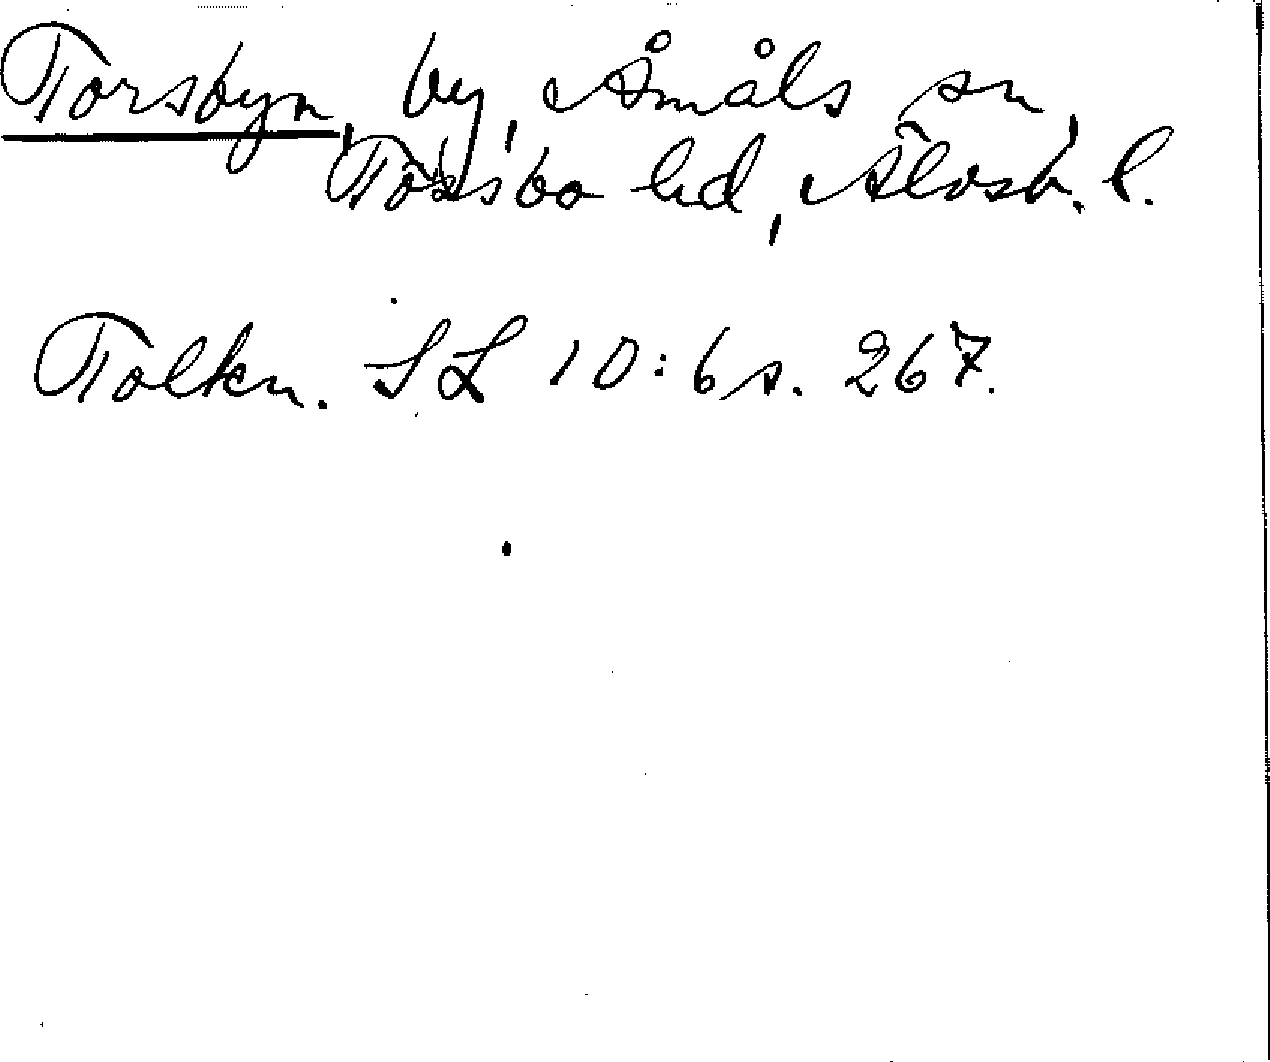 Torsbyn, by, Åmåls sn,
Tössbo hd, Älvsb. l.
Tolkn. SL 10:6 s. 267.